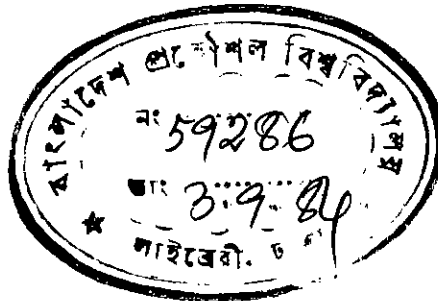 বাংলাদেশ প্রকৌশল বিশ্ববিদ্যালয়
নং 59286
তাং 3.9.84
লাইব্রেরী.